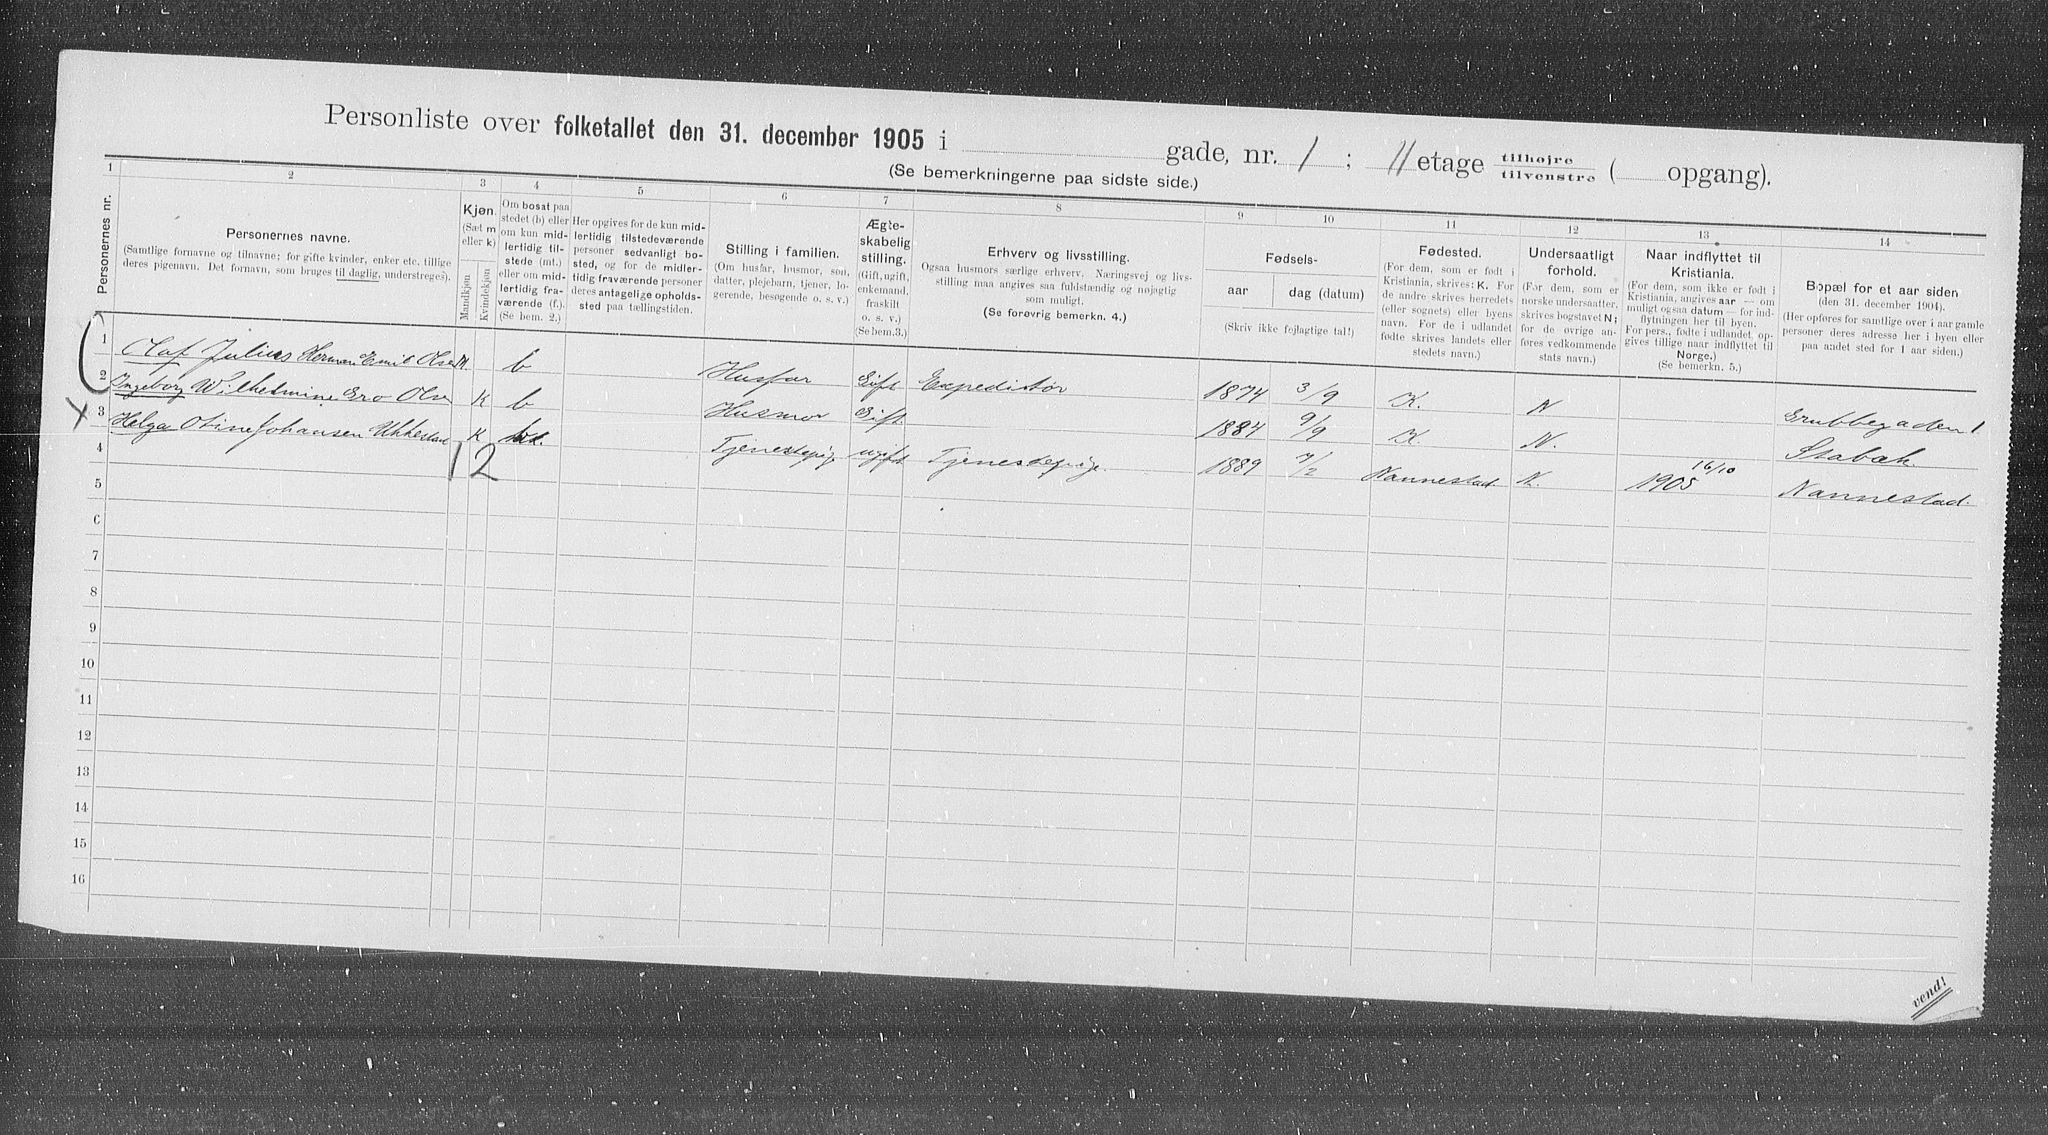 Personliste over folketallet den 31. december 1905 i gade, nr. 1 ; II etage tilhøjre tilvenstre ( opgang).
(Se bemerkningerne paa sidste side.)
1 2 3 4 5 6 7 8 9 10 11 12 13 14
Personernes nr.
Personernes navne.
(Samtlige fornavne og tilnavne; for gifte kvinder, enker etc. tillige
deres pigenavn. Det fornavn, som bruges til daglig, understreges).
Kjøn.
(Sæt m
eller k)
Mandkjøn
Kvindekjøn
Om bosat paa
stedet (b) eller
om kun mid-
lertidig til-
stede (mt.)
eller om mid-
lertidig fra-
værende (f.).
(Se bem. 2.)
Her opgives for de kun mid-
lertidig tilstedeværende
personer sedvanligt bo-
sted, og for de midler-
tidig fraværende personer
deres antagelige opholds-
sted paa tællingstiden.
Stilling i familien.
(Om husfar, husmor, søn,
datter, plejebarn, tjener, lo-
gerende, besøgende o. s. v.)
Ægte-
skabelig
stilling.
(Gift, ugift,
enkemand,
fraskilt
o. s. v.)
(Se bem. 3.)
Erhverv og livsstilling.
Ogsaa husmors særlige erhverv. Næringsvej og livs-
stilling maa angives saa fuldstændig og nøjagtig
som muligt.
(Se forøvrig bemerkn. 4.)
Fødsels-
aar dag (datum)
(Skriv ikke fejlagtige tal!)
Fødested.
(For dem, som er født i
Kristiania, skrives: K. For
de andre skrives herredets
(eller sognets) eller byens
navn. For de i udlandet
fødte skrives landets eller
stedets navn.)
Undersaatligt
forhold.
(For dem, som er
norske undersaatter,
skrives bogstavet N;
for de øvrige an-
føres vedkommende
stats navn.)
Naar indflyttet til
Kristiania.
(For dem, som ikke er født i
Kristiania, angives aar — om
muligt ogsaa datum — for ind-
flytningen her til byen.
For pers., fødte i udlandet, op-
gives tillige naar indflyttet til
Norge.)
(Se bemerkn. 5.)
Bopæl for et aar siden
(den 31. december 1904).
(Her opføres for samtlige over 1 aar gamle
personer deres adresse her i byen eller
paa andet sted for 1 aar siden.)
1 Olaf Julius Herman Emil Olsen M. b Husfar Gift Expeditør 1874 3/9 K. N Grubbegaden 1
2 Ingeborg Wilhelmine Ero Olsen K b Husmor Gift. 1884 9/9 K N. Stabæk
x 3 Helga Otine Johansen K Tjenestepige ugift Tjenestepige. 1889 7/2 Nannestad N. 16/10 1905 Nannestad.
1 2
4
5
6
7
8
9
10
11
12
13
14
15
16
vend!